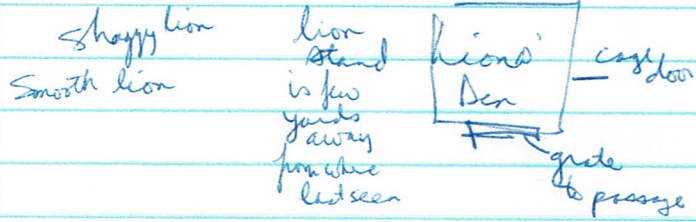 Shaggy lion
Smooth lion
lion
stand
is few
yards
away
from where
last seen
Lions'
Den
cage
door
grate
to passage